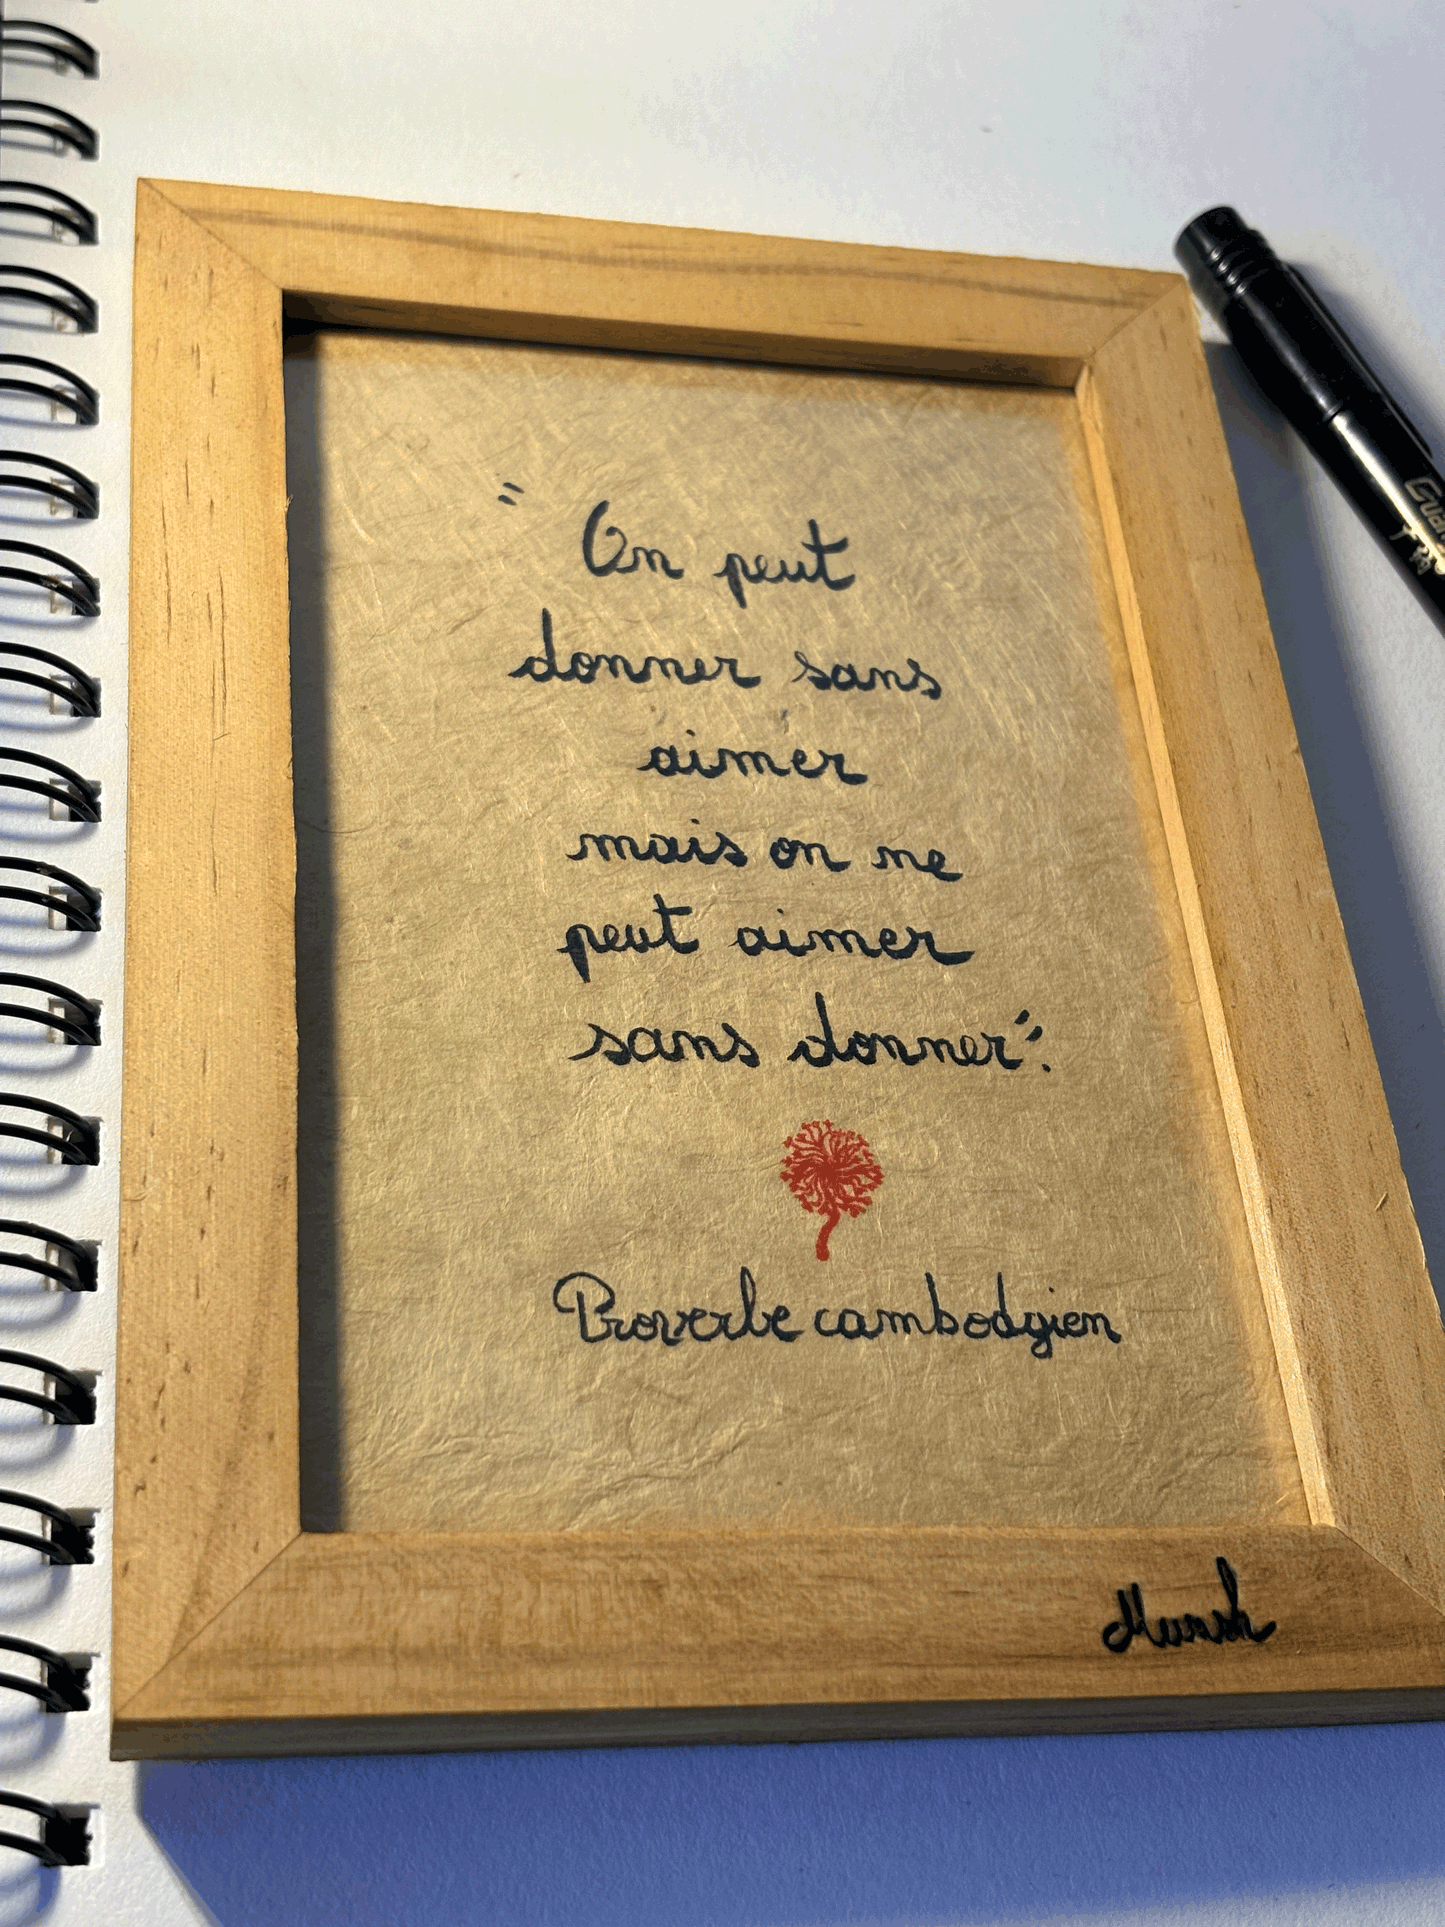 "On peut
donner sans
aimer
mais on ne
peut aimer
sans donner".
Proverbe cambodgien